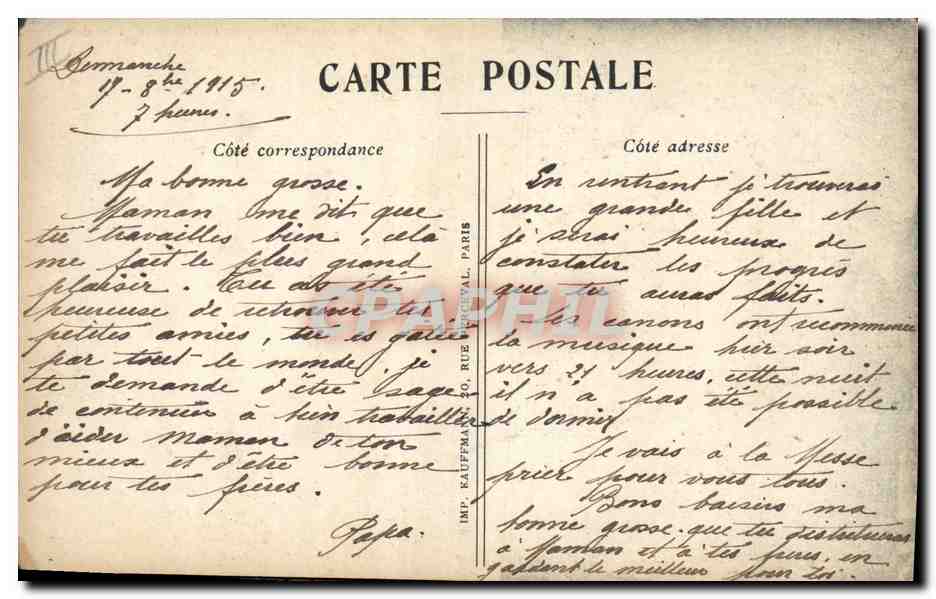 III
Dimanche
17 - 8bre 1915.
7 heures.
CARTE POSTALE
Côté correspondance
Ma bonne grosse.
Maman me dit que
tu travailles bien, celà
me fait le plus grand
plaisir. Tu as été
heureuse de retrouver tes
petites amies, tu es gatée
par tout le monde, je
te demande d'être sage
de continuer à bien travailler
d'aider maman de ton
mieux et d'être bonne
pour tes frères.
Papa.
IMP. KAUFFMANN, 20, RUE PERCEVAL, PARIS
CPAPHIL
Côté adresse
En rentrant je trouverai
une grande fille et
je serai heureux de
constater les progrès
que tu auras faits.
Les canons ont recommencé
la musique hier soir
vers 21 heures, cette nuit
il n'a pas été possible
de dormir
Je vais à la Messe
prier pour vous tous.
Bons baisers ma
bonne grosse que tu distribueras
à Maman et à tes frères, en
gardant le meilleur pour toi.